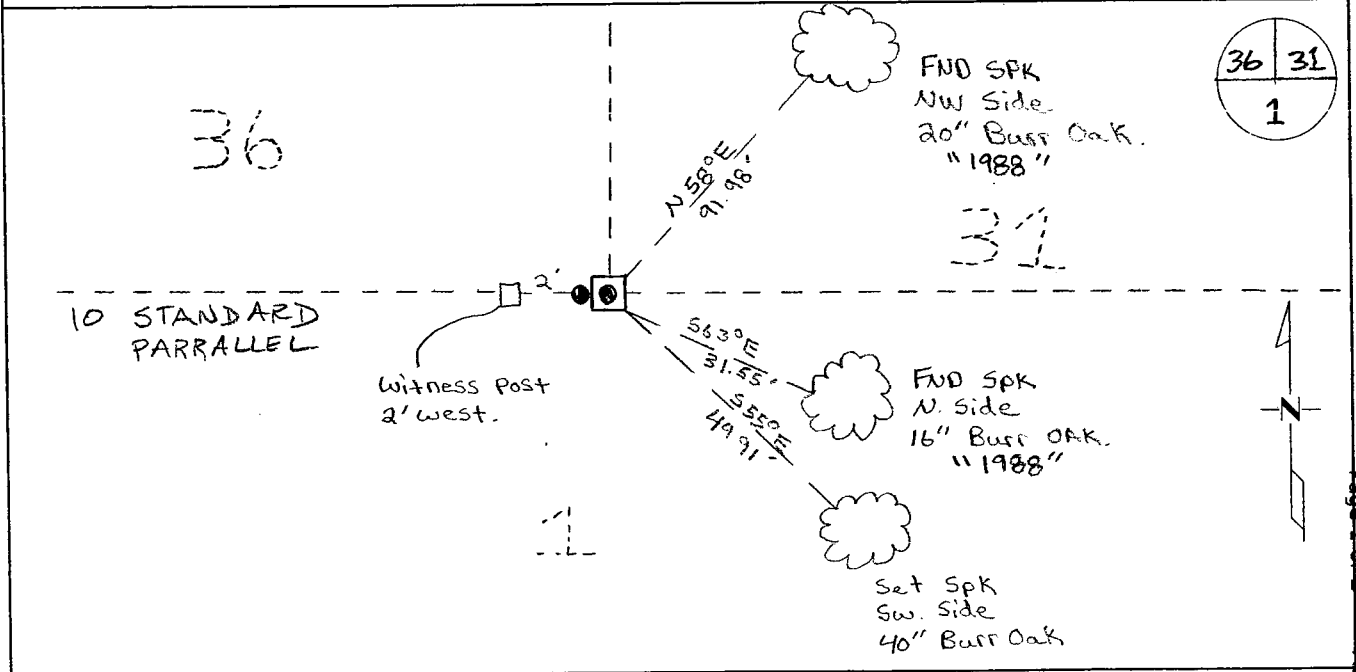 36
FND SPK
NW Side
20" Burr Oak.
"1988"
36 31
1
N 58°E
91.98'
31
2'
10 STANDARD
PARRALLEL
Witness Post
2' west.
S63°E
31.55'
S55°E
49.91'
FND SPK
N. Side
16" Burr OAK.
"1988"
N
1
Set SPK
SW. Side
40" Burr Oak